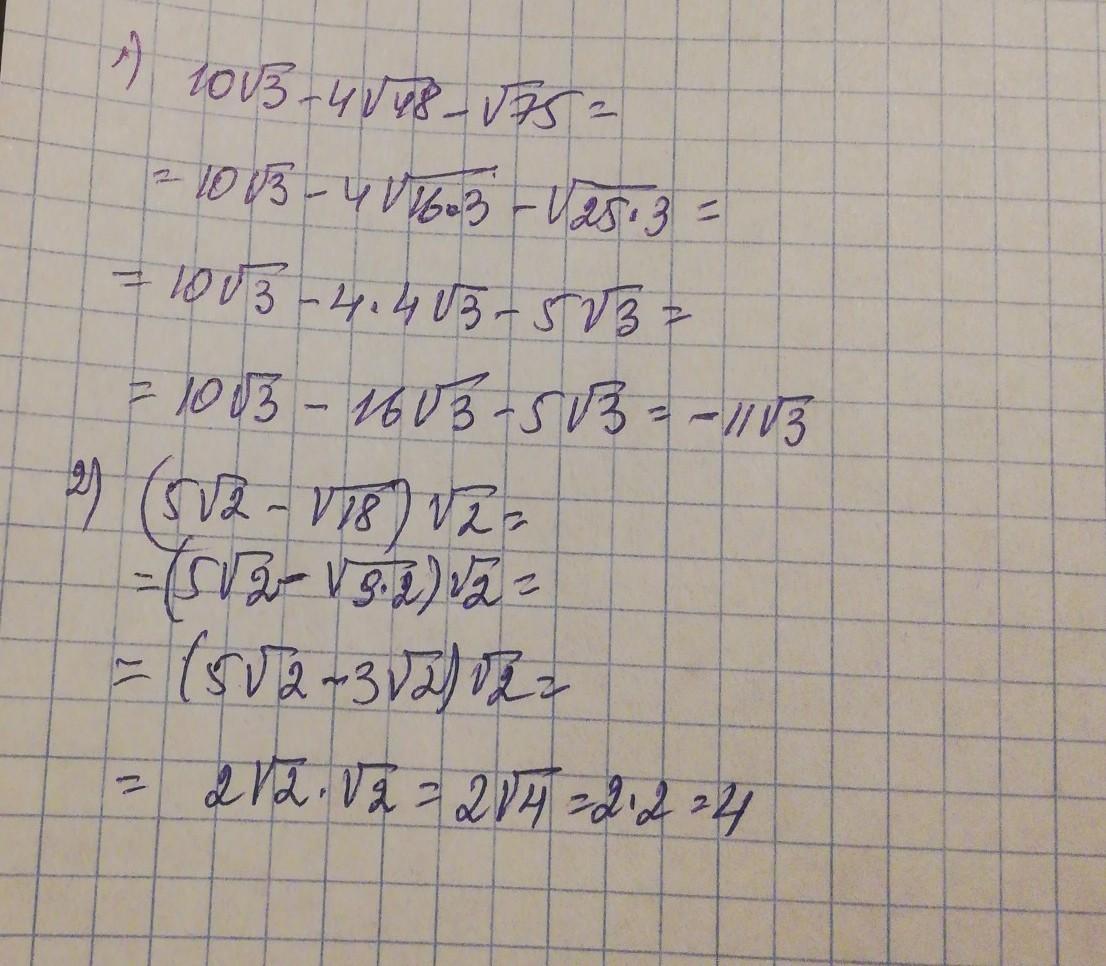 1) 10√3 - 4√48 - √75 =
= 10√3 - 4√16·3 - √25·3 =
= 10√3 - 4·4√3 - 5√3 =
= 10√3 - 16√3 - 5√3 = -11√3
2) (5√2 - √18)√2 =
= (5√2 - √9·2)√2 =
= (5√2 - 3√2)√2 =
= 2√2·√2 = 2√4 = 2·2 = 4